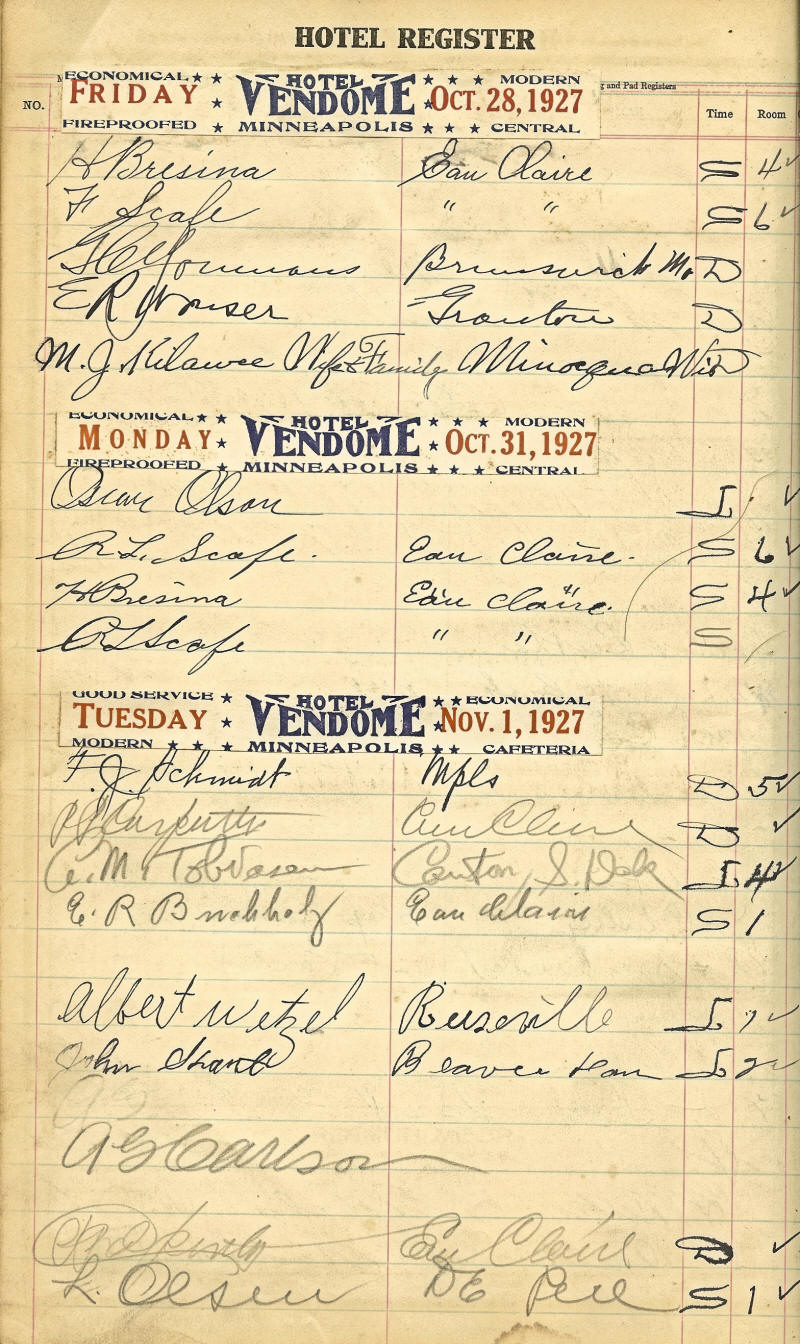 HOTEL REGISTER
g and Pad Registers
NO. Time Room
ECONOMICAL HOTEL MODERN
FRIDAY VENDOME OCT. 28, 1927
FIREPROOFED MINNEAPOLIS CENTRAL
H Bresina Eau Claire S 4 ✓
F Scafe " " S 6 ✓
Brunswick Mo D
E R D
M. J. Kilawee Wife & Family Minocqua Wis D
ECONOMICAL HOTEL MODERN
MONDAY VENDOME OCT. 31, 1927
FIREPROOFED MINNEAPOLIS CENTRAL
Oscar Olson L ✓
R. L. Scafe. Eau Claire. S 6 ✓
H Bresina Eau Claire. S 4 ✓
R L Scafe " " S
GOOD SERVICE HOTEL ECONOMICAL
TUESDAY VENDOME NOV. 1, 1927
MODERN MINNEAPOLIS CAFETERIA
F. J. Schmidt Mpls D 5 ✓
Eau Claire D ✓
M. Tobiason Canton, S. Dak L 4 ✓
E. R Buchholz Eau Claire S 1
Albert Wetzel Reeseville L 7 ✓
John Beaver Dam L 2 ✓
A G Carlson
Eau Claire D ✓
L. Olsen DE Pere S 1 ✓